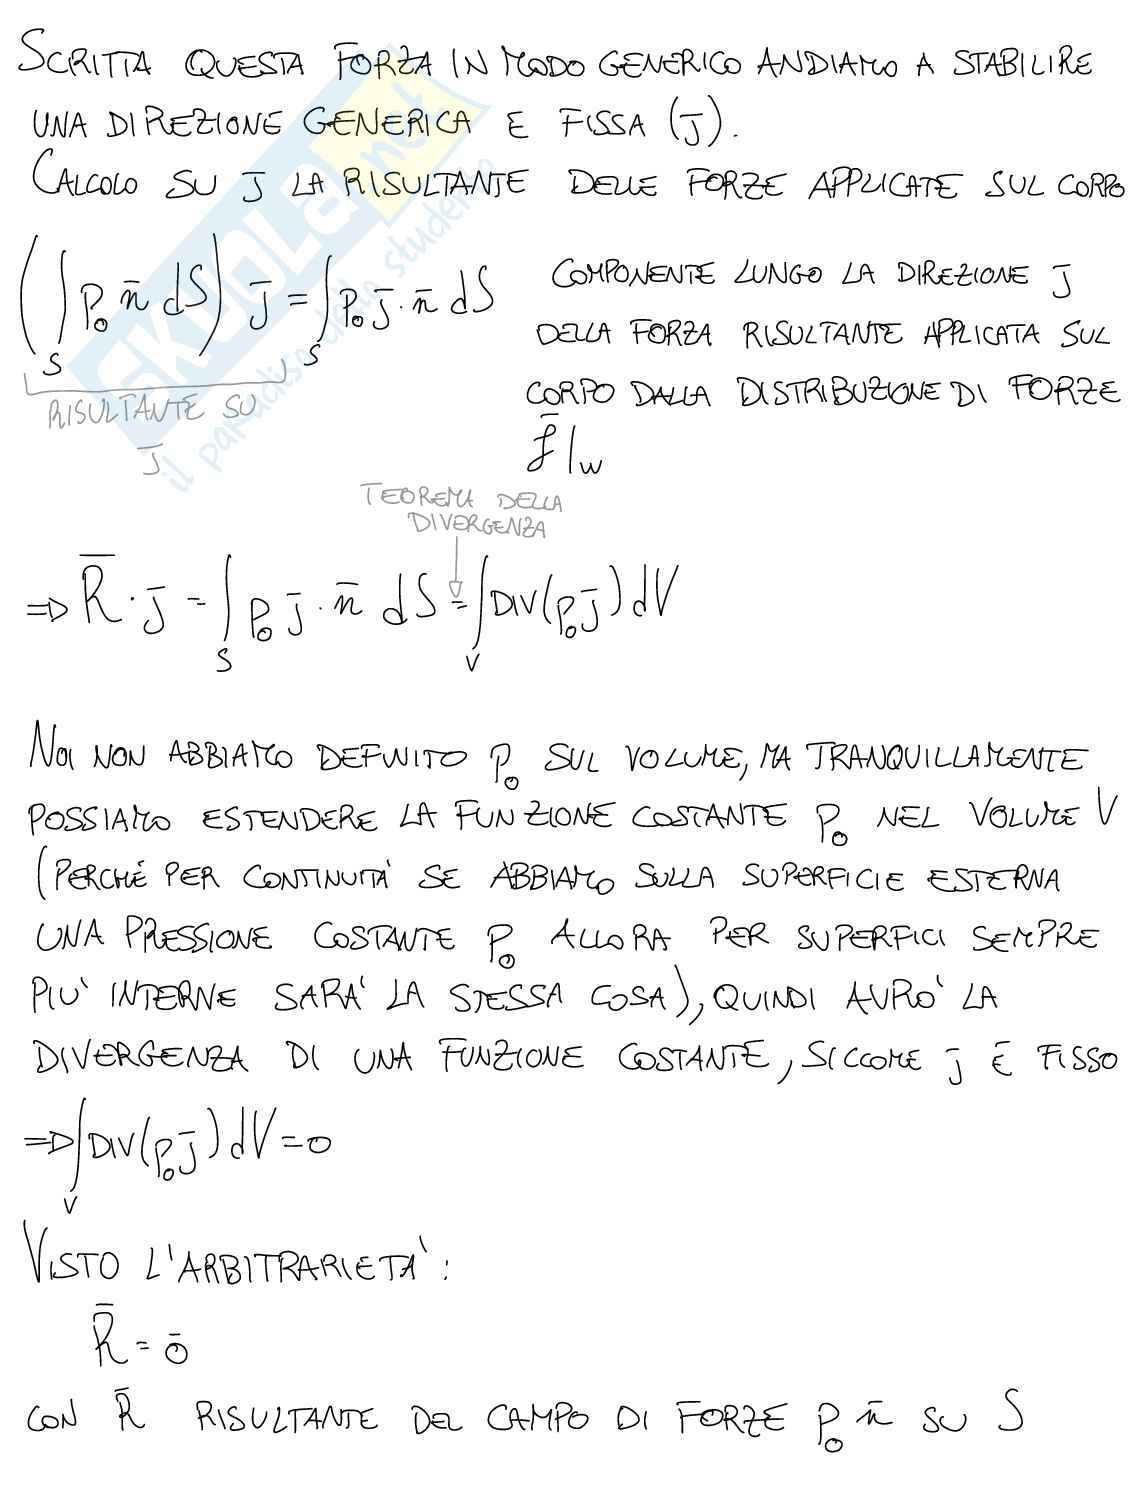 SCRITTA QUESTA FORZA IN MODO GENERICO ANDIAMO A STABILIRE
UNA DIREZIONE GENERICA E FISSA (j̄).
CALCOLO SU j̄ LA RISULTANTE DELLE FORZE APPLICATE SUL CORPO
(∫_S p₀ n̄ dS) j̄ = ∫_S p₀ j̄ · n̄ dS
RISULTANTE SU
j̄
COMPONENTE LUNGO LA DIREZIONE j̄
DELLA FORZA RISULTANTE APPLICATA SUL
CORPO DALLA DISTRIBUZIONE DI FORZE
f̄|w
TEOREMA DELLA
DIVERGENZA
⇒ R̄ · j̄ = ∫_S p₀ j̄ · n̄ dS = ∫_V DIV(p₀ j̄) dV
NOI NON ABBIAMO DEFINITO p₀ SUL VOLUME, MA TRANQUILLAMENTE
POSSIAMO ESTENDERE LA FUNZIONE COSTANTE p₀ NEL VOLUME V
(PERCHÉ PER CONTINUITÀ SE ABBIAMO SULLA SUPERFICIE ESTERNA
UNA PRESSIONE COSTANTE p₀ ALLORA PER SUPERFICI SEMPRE
PIU' INTERNE SARA' LA STESSA COSA), QUINDI AVRO' LA
DIVERGENZA DI UNA FUNZIONE COSTANTE, SICCOME j̄ È FISSO
⇒ ∫_V DIV(p₀ j̄) dV = 0
VISTO L'ARBITRARIETA':
R̄ = 0̄
CON R̄ RISULTANTE DEL CAMPO DI FORZE p₀ n̄ SU S
SKUOLA.net
il paradiso dello studente